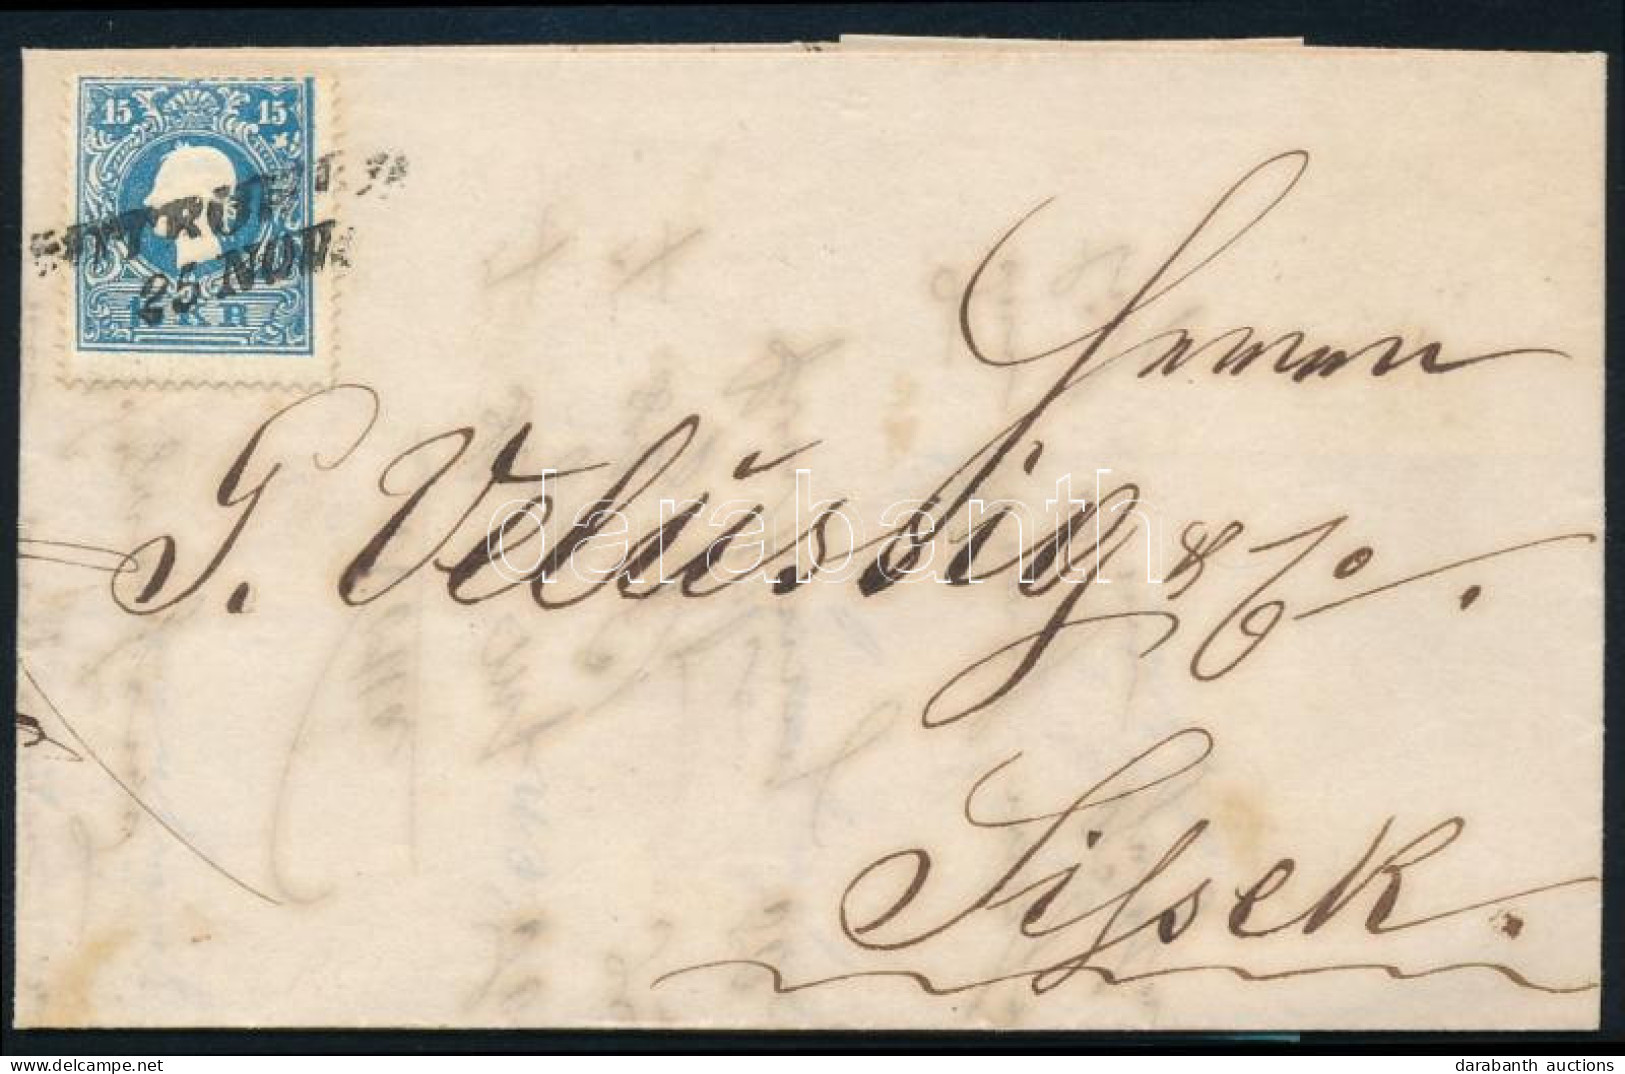 15 15
25 NOV.
KR
Herrn
P. Velŭssig & Co.
Sissek.
darabanth
darabanth auctions